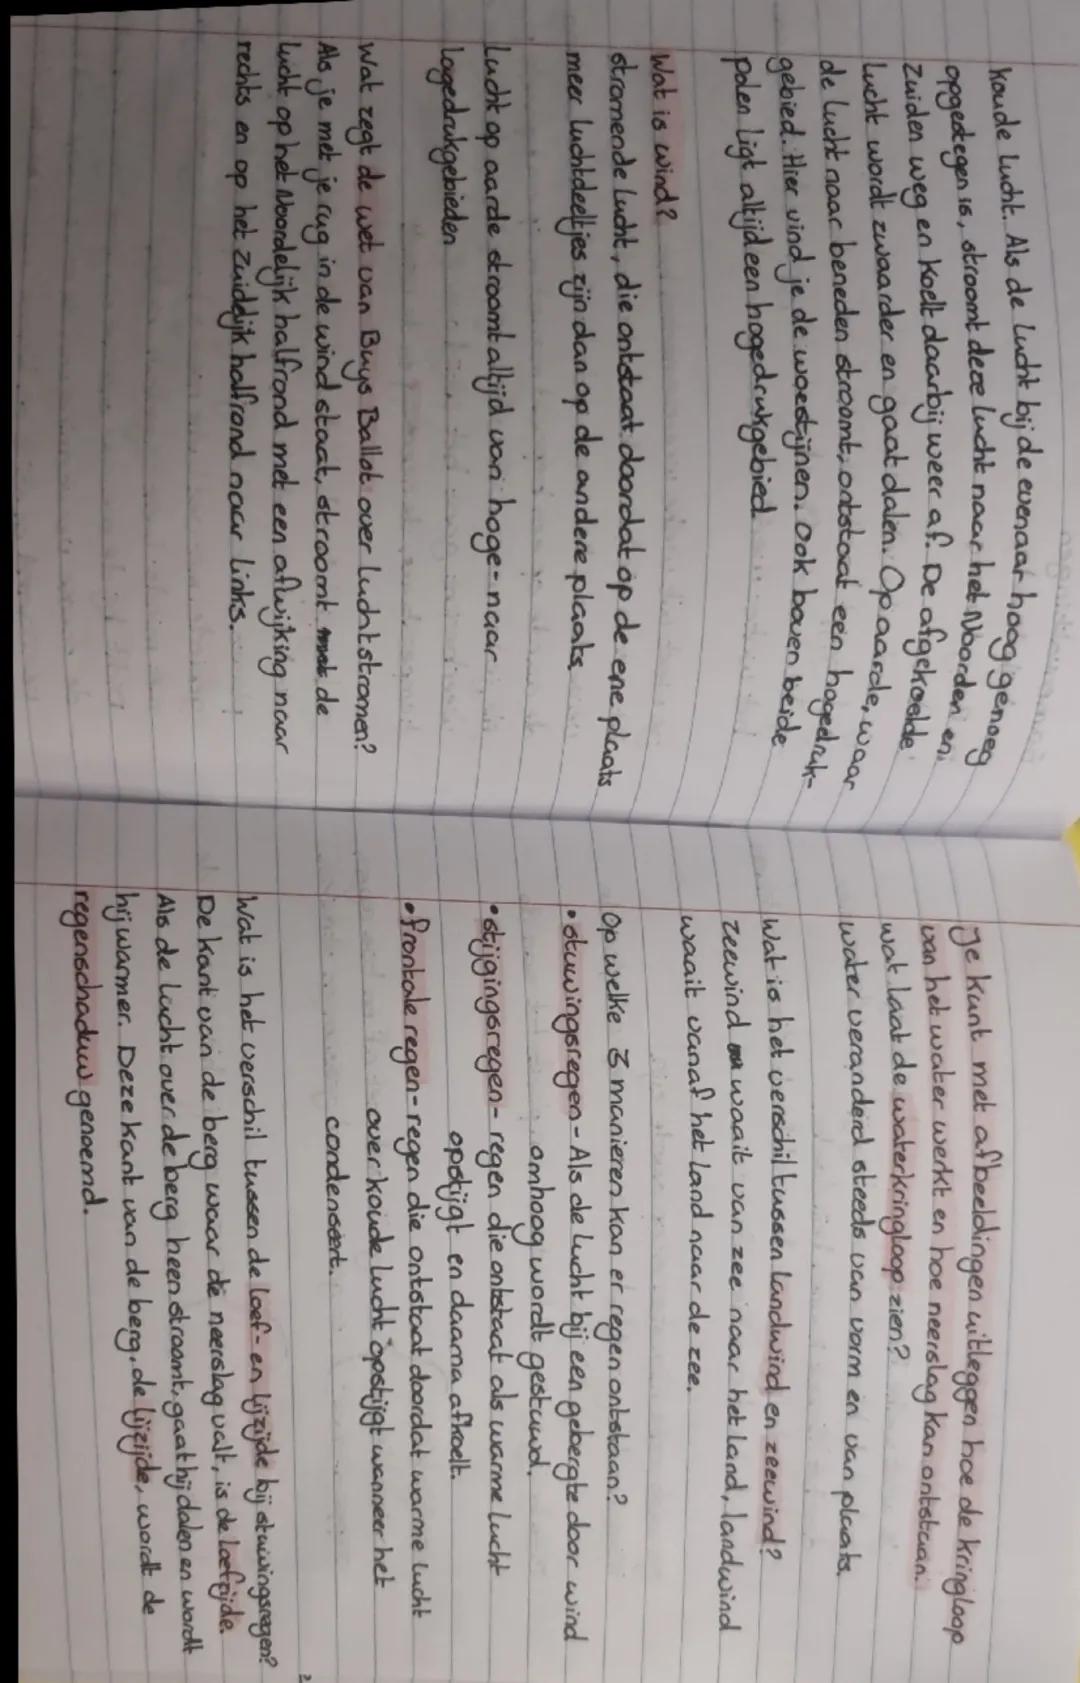 koude lucht. Als de lucht bij de evenaar hoog genoeg
opgestegen is, stroomt deze lucht naar het Noorden en
Zuiden weg en koelt daarbij weer af. De afgekoelde
lucht wordt zwaarder en gaat dalen. Op aarde, waar
de lucht naar beneden stroomt, ontstaat een hogedruk-
gebied. Hier vind je de woestijnen. Ook boven beide
polen ligt altijd een hogedrukgebied.
Wat is wind?
stromende lucht, die ontstaat doordat op de ene plaats
meer luchtdeeltjes zijn dan op de andere plaats.
Lucht op aarde stroomt altijd van hoge- naar
lagedrukgebieden
Wat zegt de wet van Buys Ballot over luchtstromen?
Als je met je rug in de wind staat, stroomt de
lucht op het Noordelijk halfrond met een afwijking naar
rechts en op het Zuidelijk halfrond naar links.
Je kunt met afbeeldingen uitleggen hoe de kringloop
van het water werkt en hoe neerslag kan ontstaan.
wat laat de waterkringloop zien?
water veranderd steeds van vorm en van plaats.
Wat is het verschil tussen landwind en zeewind?
zeewind waait van zee naar het land, landwind
waait vanaf het land naar de zee.
Op welke 3 manieren kan er regen ontstaan?
• stuwingsregen - Als de lucht bij een gebergte door wind
omhoog wordt gestuwd.
• stijgingsregen - regen die ontstaat als warme lucht
opstijgt en daarna afkoelt.
• frontale regen - regen die ontstaat doordat warme lucht
over koude lucht opstijgt wanneer het
condenseert.
Wat is het verschil tussen de loef- en lijzijde bij stuwingsregen?
De kant van de berg waar de neerslag valt, is de loefzijde.
Als de lucht over de berg heen stroomt, gaat hij dalen en wordt
hij warmer. Deze kant van de berg, de lijzijde, wordt de
regenschaduw genoemd.